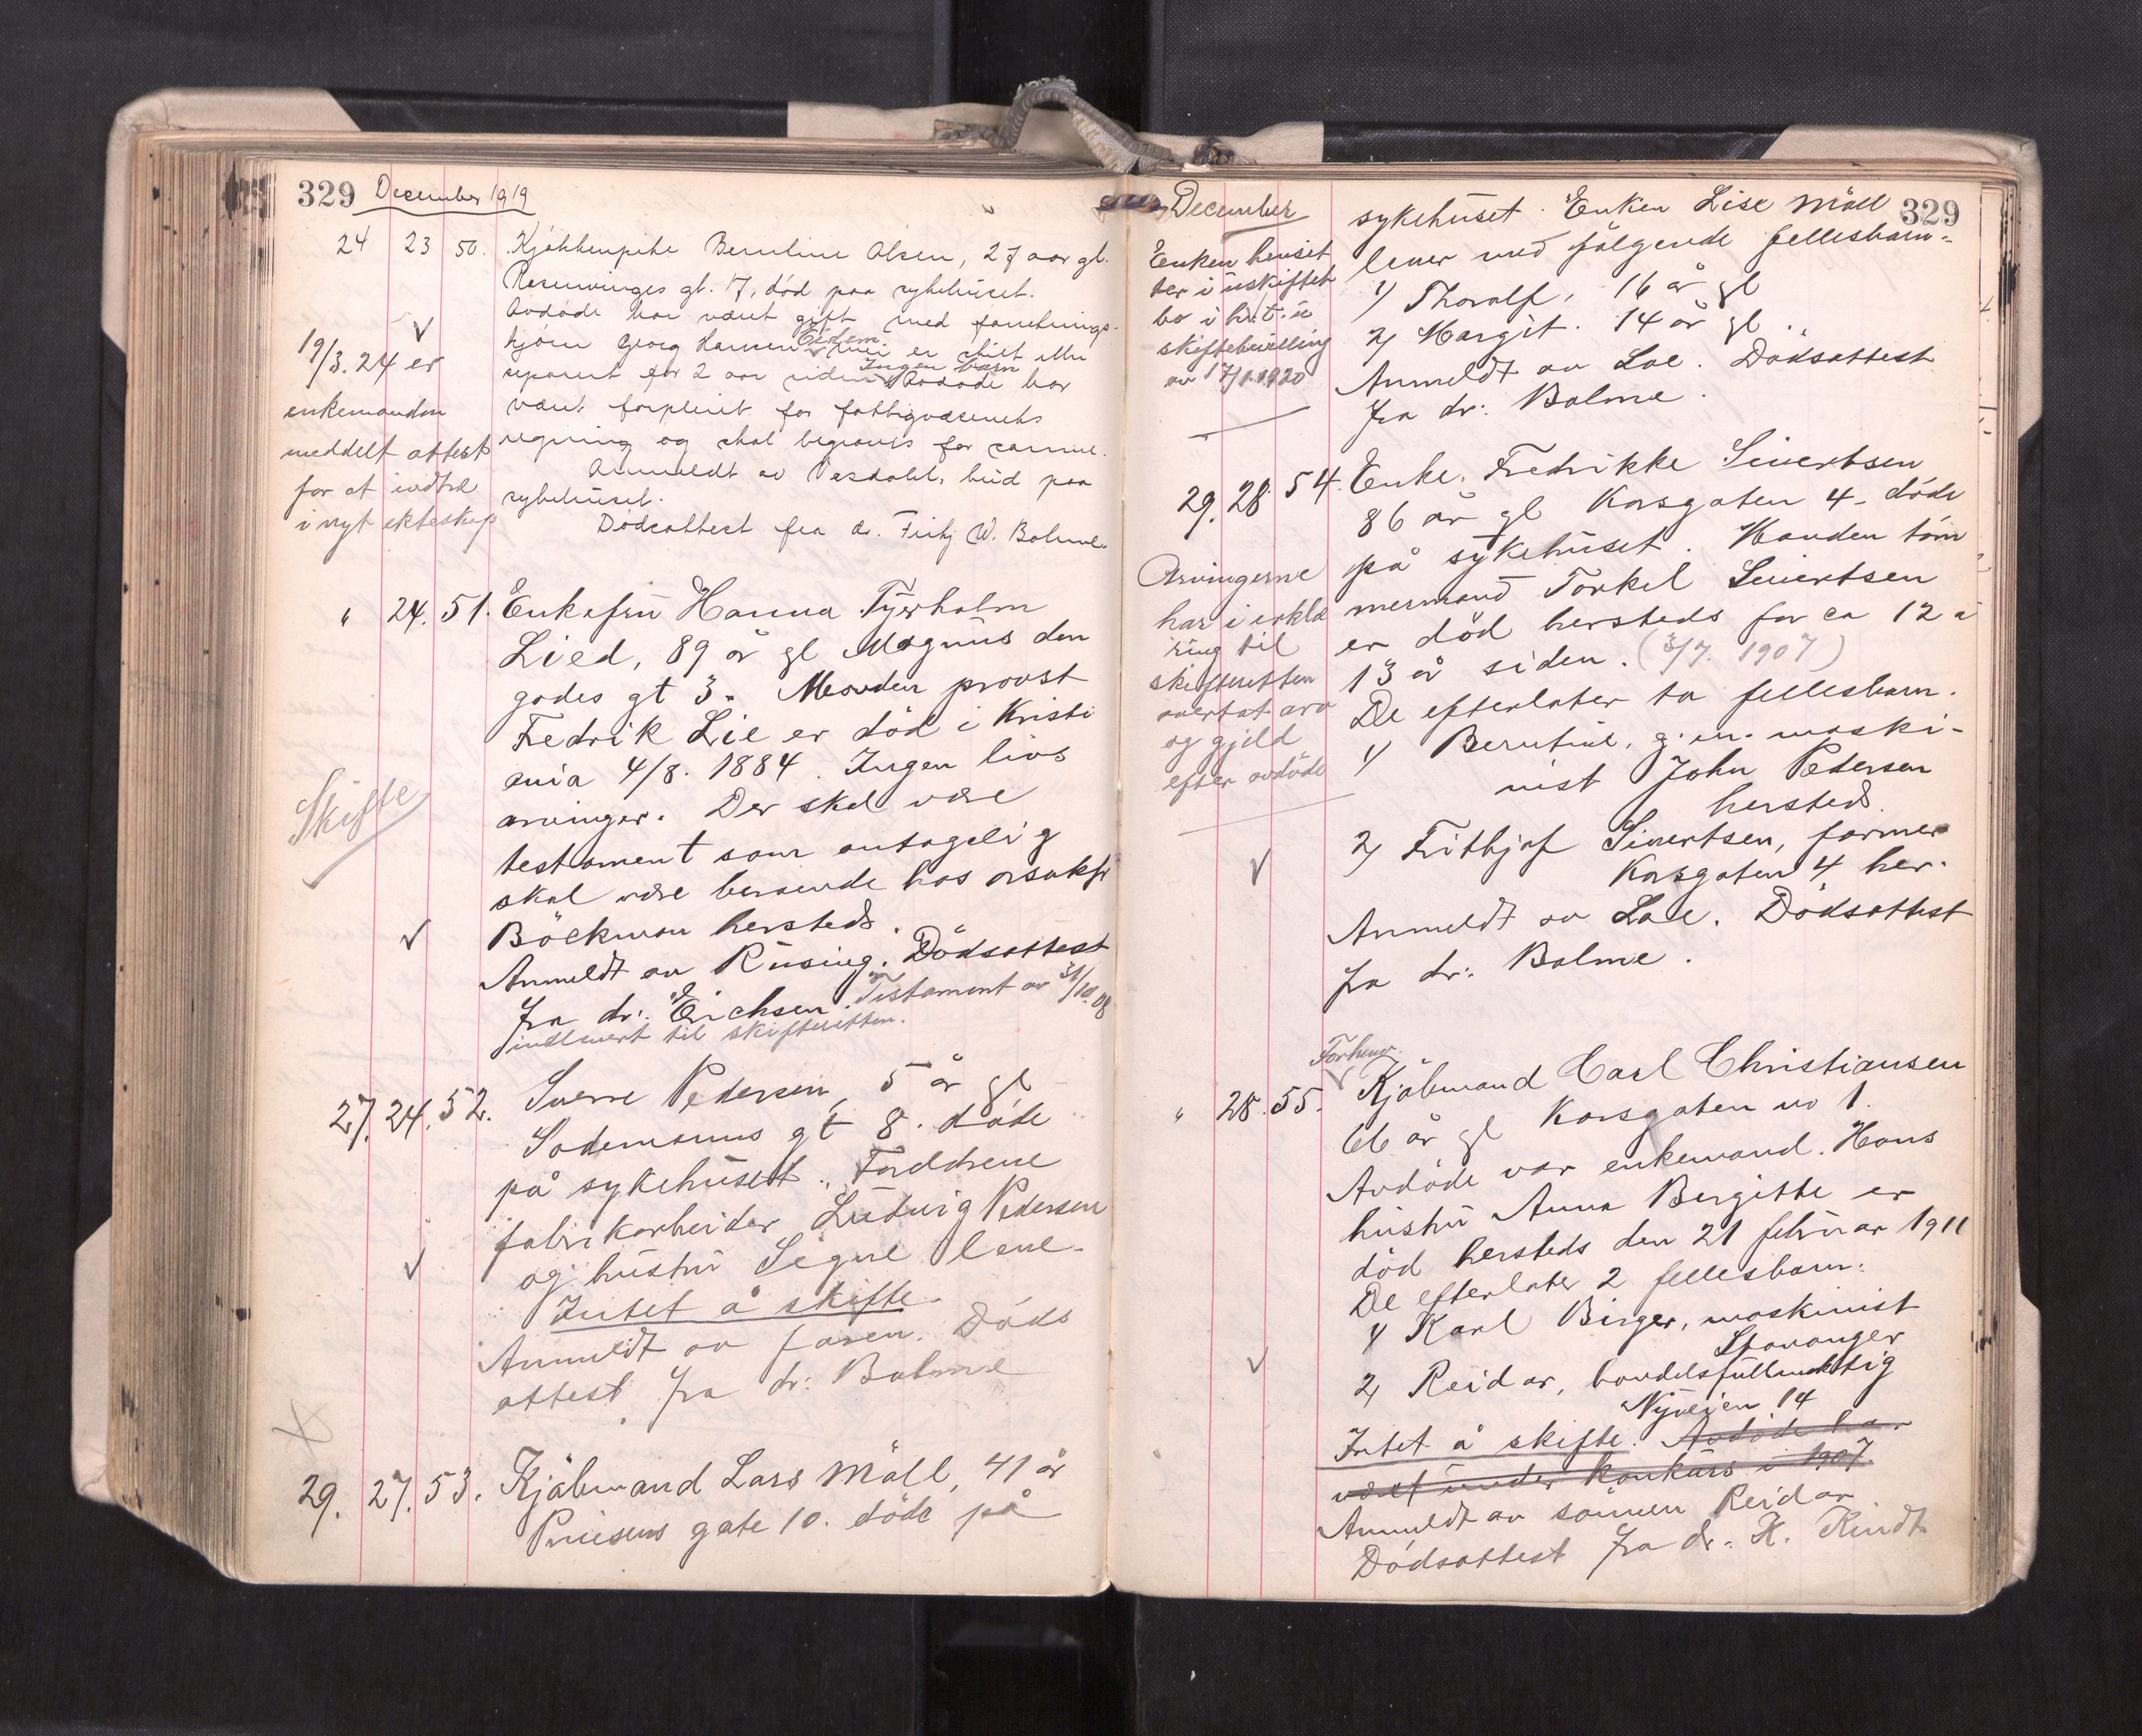 329 December 1919
24 23 50. Kjøkkenpike Berntine Olsen, 27 aar gl.
Rosenvinges gt. 17, død paa sykehuset.
Avdøde har været gift med forretnings-
bjørn Georg Hansen Eidem men er skilt eller
separert for 2 aar siden. Ingen barn Avdøde har
været forpleiet for fattigvæsenets
regning og skal begraves for samme.
Anmeldt av Vesdahl, bud paa
sykehuset.
Dødsattest fra dr. Fritz W. Bolme.
19/3. 24 er
enkemanden
meddelt attest
for at indtræ
i nyt ekteskap
" 24. 51. Enkefru Hanna Tyrholm
Lied, 89 år gl Magnus den
godes gt 3. Manden provst
Fredrik Lie er död i Kristi
ania 4/8. 1884. Ingen livs
arvinger. Der skal være
testament som antagelig
skal være beroende hos orsakfr
Böckman hersteds.
Anmeldt av Rüsing. Dödsattest
fra dr: Erichsen. Testament av 31/10.08
indlevert til skifteretten.
Skifte
27. 24. 52. Sverre Pedersen, 5 år gl
Sodemanns gt 8. döde
på sykehuset. Forældrene
fabrikarbeider Ludvig Pedersen
og hustru Signe leve.
Intet å skifte.
Anmeldt av faren. Döds
attest fra dr: Bolme
29. 27. 53. Kjöbmand Lars Möll, 41 år
Prinsens gate 10. döde på
December 329
sykehuset. Enken Lise Möll
lever med fölgende fellesbarn:
1) Thoralf, 16 år gl
2) Margit. 14 år gl ..
Anmeldt av Loe. Dödsattest
fra dr: Bolme.
Enken henset
ter i uskiftet
bo i h.t. u
skiftebevilling
av 17/1.1920
29. 28. 54. Enke. Fredrikke Sivertsen
86 år gl Korsgaten 4. döde
på sykehuset. Manden töm
mermand Torkel Sivertsen
er död hersteds for ca 12 à
13 å siden. (3/7. 1907)
De efterlater to fellesbarn.
1) Berntine, g.m. maski-
nist John Pedersen
hersteds.
2) Frithjof Sivertsen, former
Korsgaten 4 her.
Anmeldt av Loe. Dödsattest
fra dr: Bolme.
Arvingerne
har i erklæ
ring til
skifteretten
overtat arv
og gjeld
efter avdöde
Forhenv.
" 28. 55. Kjöbmand Carl Christiansen
66 år gl Korsgaten no 1.
Avdöde var enkemand. Hans
hustru Anna Bergitte er
död hersteds den 21 februar 1911
De efterlater 2 fellesbarn:
1) Karl Birger, maskinist
Stavanger
2) Reidar, handelsfullmæktig
Nyveien 14
Intet å skifte. Avdöde har
været under konkurs i 1907.
Anmeldt av sönnen Reidar
Dödsattest fra dr: K. Rindt